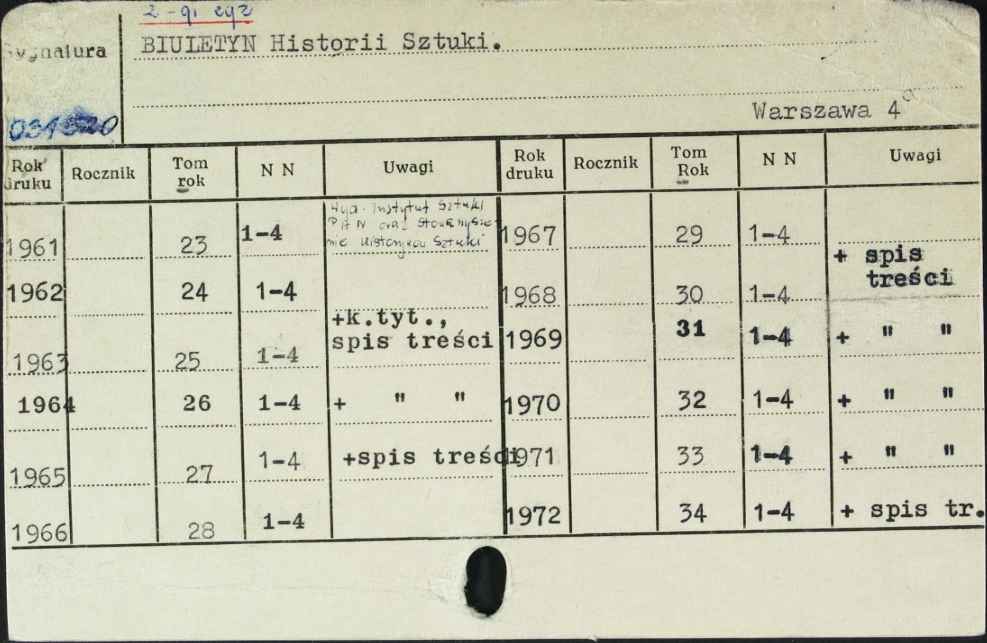 2-gi egz
Sygnatura
BIULETYN Historii Sztuki.
Warszawa 4°
Rok druku Rocznik Tom rok N N Uwagi Rok druku Rocznik Tom Rok N N Uwagi
1961 23 1-4 Wyd. Instytut Sztuki PAN oraz Stowarzyszenie Historyków Sztuki 1967 29 1-4
1962 24 1-4 1968 30 1-4 + spis treści
1963 25 1-4 +k.tyt., spis treści 1969 31 1-4 + " "
1964 26 1-4 + " " 1970 32 1-4 + " "
1965 27 1-4 +spis treści 1971 33 1-4 + " "
1966 28 1-4 1972 34 1-4 + spis tr.